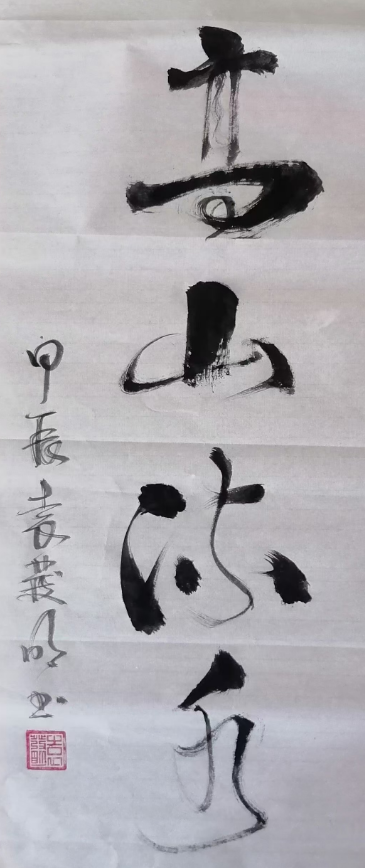 高山流水
甲辰袁茂明书